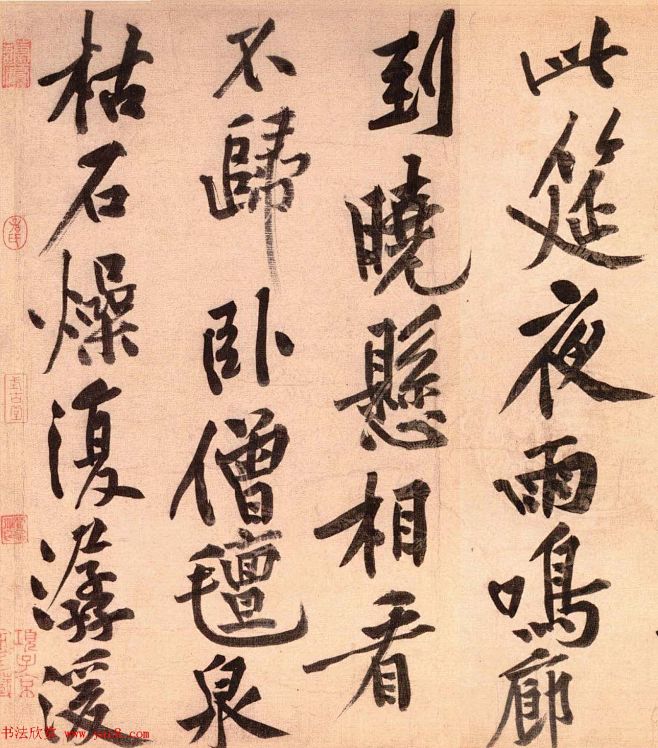 此筵夜雨鳴廊
到曉懸相看
不歸臥僧氈泉
枯石燥復潺湲
书法欣赏 www.yac8.com